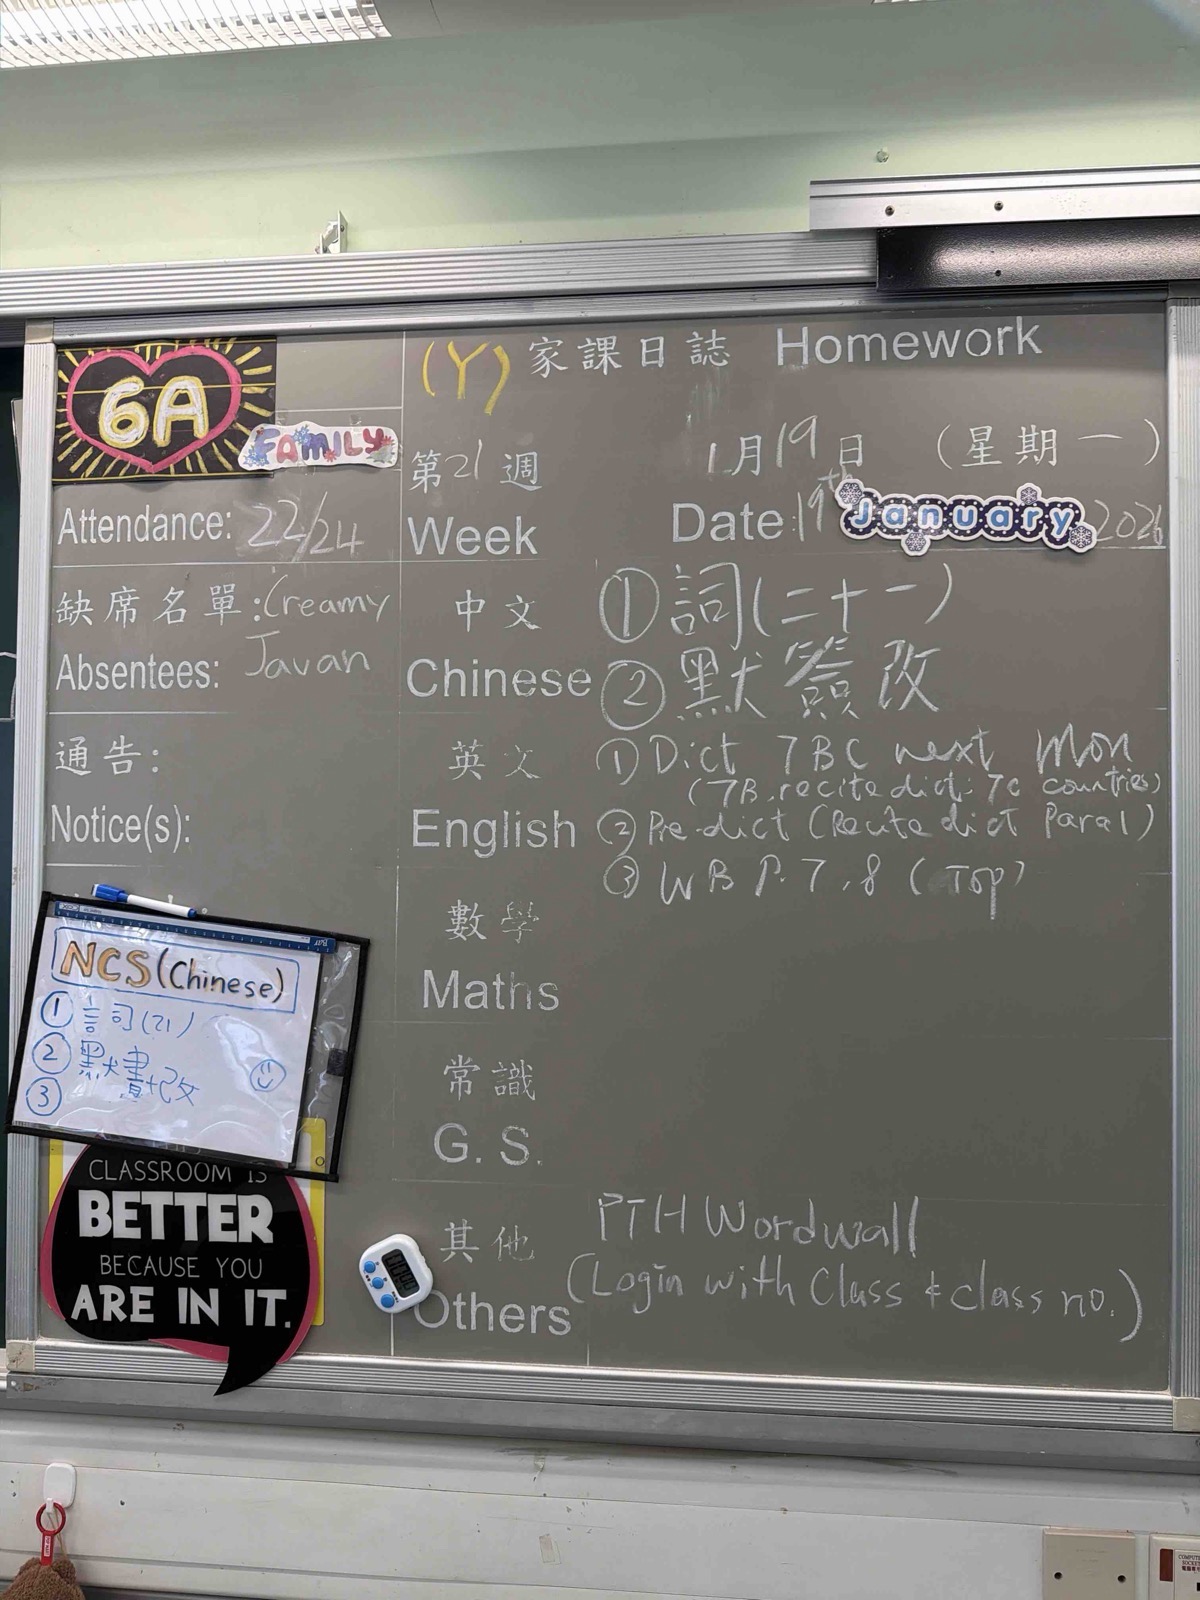 6A
FAMILY
(Y) 家課日誌 Homework
第21週 1月19日 (星期一)
Week Date: 19th January 2026
Attendance: 22/24
缺席名單: Creamy
Absentees: Javan
通告:
Notice(s):
中文
Chinese
① 詞(二十一)
② 默簽改
英文
English
① Dict 7BC next Mon
(7B, recite dict: 7C countries)
② Pre-dict (Recite dict Para 1)
③ WB P.7,8 (Top)
數學
Maths
常識
G. S.
其他
Others
PTH Wordwall
(Login with Class & class no.)
NCS (Chinese)
① 詞(21)
② 默書改
③
CLASSROOM IS
BETTER
BECAUSE YOU
ARE IN IT.